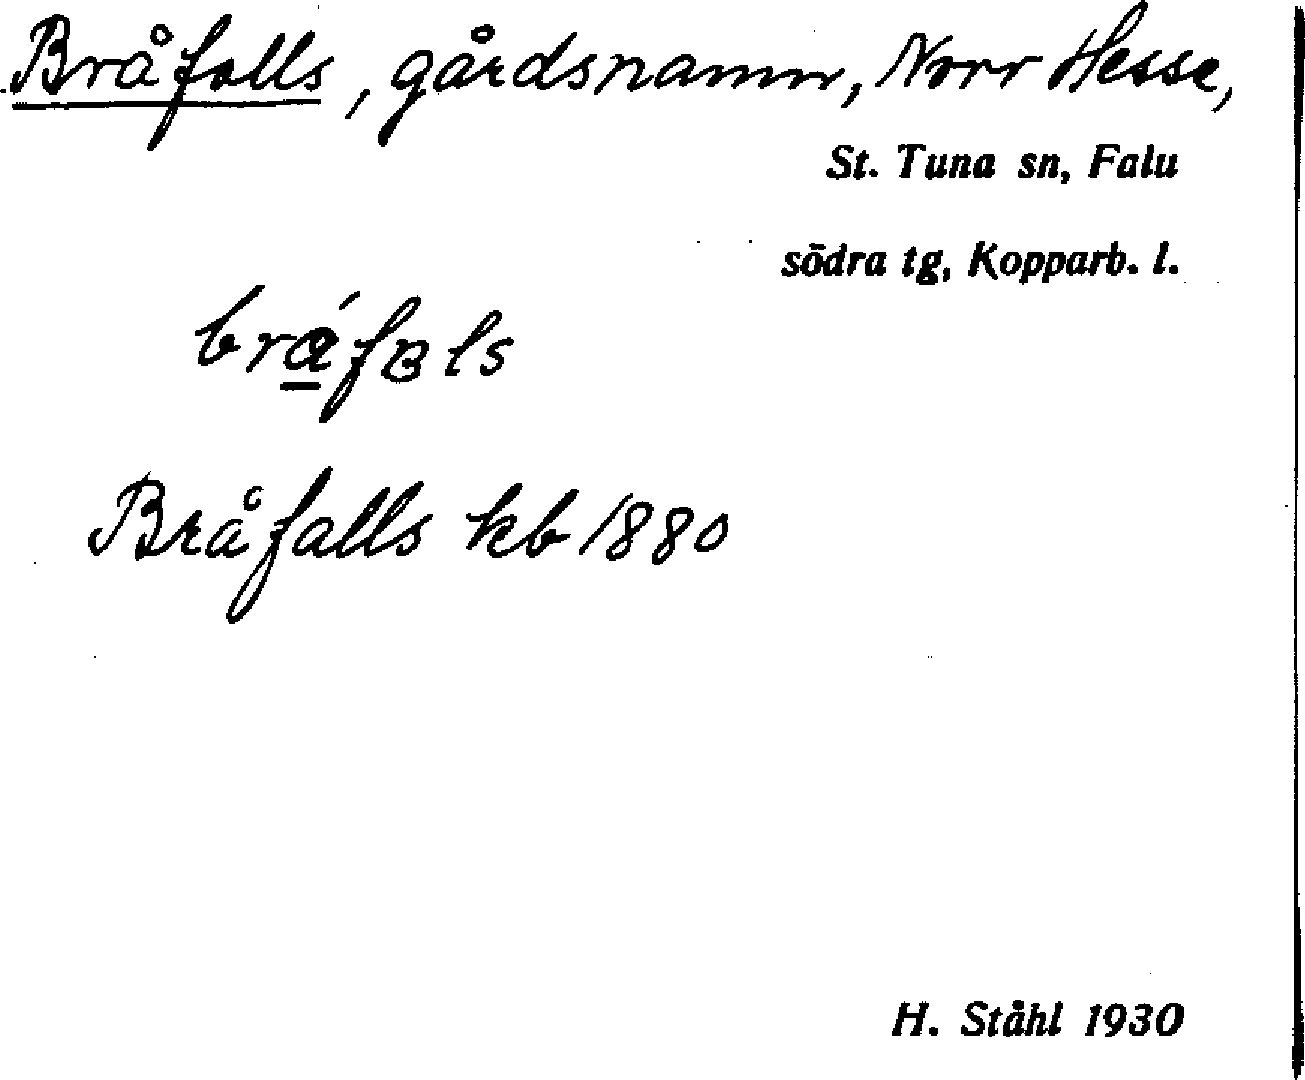 Bråfalls, gårdsnamn, Norr Hesse,
St. Tuna sn, Falu
södra tg, Kopparb. l.
Bråfalls kb 1880
H. Ståhl 1930